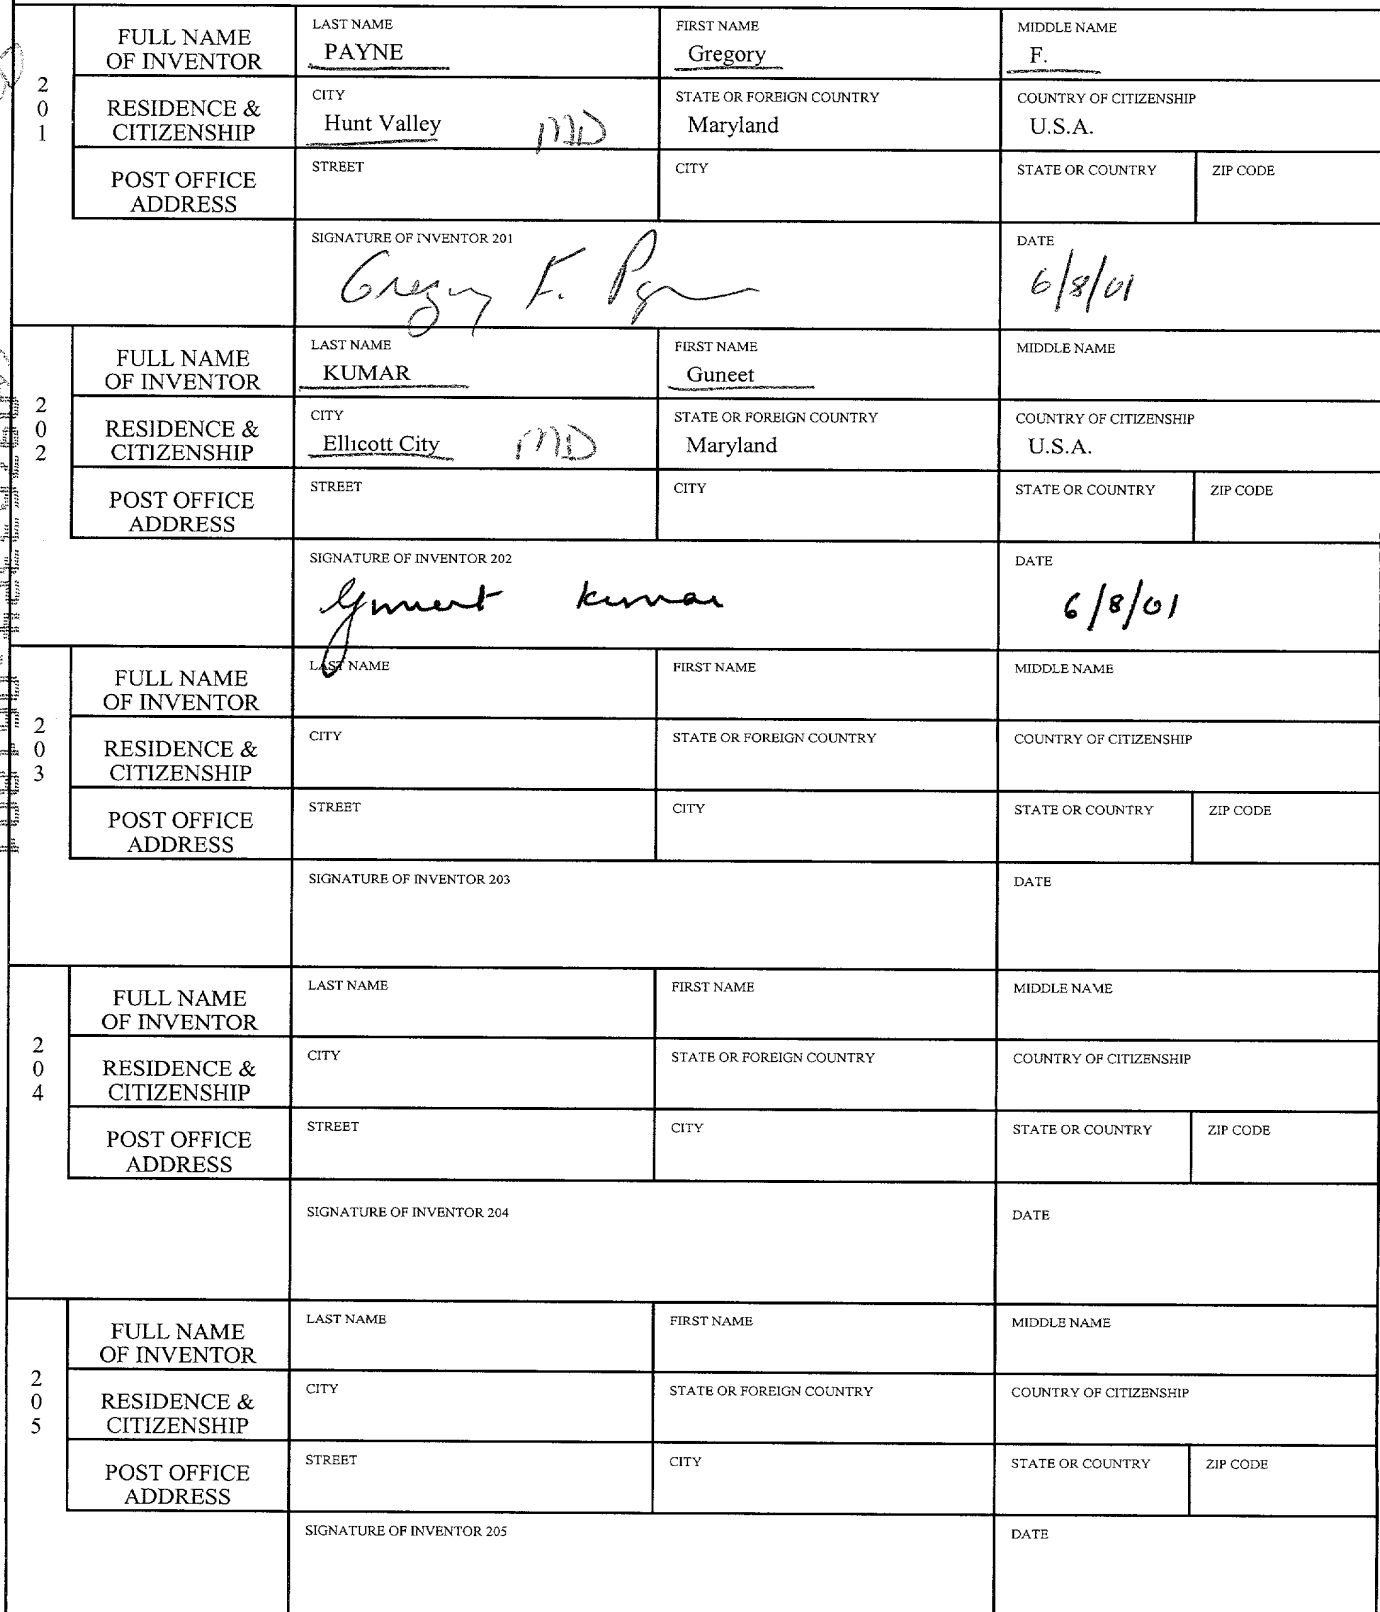 201
FULL NAME OF INVENTOR
LAST NAME
PAYNE
FIRST NAME
Gregory
MIDDLE NAME
F.
RESIDENCE & CITIZENSHIP
CITY
Hunt Valley MD
STATE OR FOREIGN COUNTRY
Maryland
COUNTRY OF CITIZENSHIP
U.S.A.
POST OFFICE ADDRESS
STREET
CITY
STATE OR COUNTRY
ZIP CODE
SIGNATURE OF INVENTOR 201
Gregory F. Payne
DATE
6/8/01
202
FULL NAME OF INVENTOR
LAST NAME
KUMAR
FIRST NAME
Guneet
MIDDLE NAME
RESIDENCE & CITIZENSHIP
CITY
Ellicott City MD
STATE OR FOREIGN COUNTRY
Maryland
COUNTRY OF CITIZENSHIP
U.S.A.
POST OFFICE ADDRESS
STREET
CITY
STATE OR COUNTRY
ZIP CODE
SIGNATURE OF INVENTOR 202
Guneet Kumar
DATE
6/8/01
203
FULL NAME OF INVENTOR
LAST NAME
FIRST NAME
MIDDLE NAME
RESIDENCE & CITIZENSHIP
CITY
STATE OR FOREIGN COUNTRY
COUNTRY OF CITIZENSHIP
POST OFFICE ADDRESS
STREET
CITY
STATE OR COUNTRY
ZIP CODE
SIGNATURE OF INVENTOR 203
DATE
204
FULL NAME OF INVENTOR
LAST NAME
FIRST NAME
MIDDLE NAME
RESIDENCE & CITIZENSHIP
CITY
STATE OR FOREIGN COUNTRY
COUNTRY OF CITIZENSHIP
POST OFFICE ADDRESS
STREET
CITY
STATE OR COUNTRY
ZIP CODE
SIGNATURE OF INVENTOR 204
DATE
205
FULL NAME OF INVENTOR
LAST NAME
FIRST NAME
MIDDLE NAME
RESIDENCE & CITIZENSHIP
CITY
STATE OR FOREIGN COUNTRY
COUNTRY OF CITIZENSHIP
POST OFFICE ADDRESS
STREET
CITY
STATE OR COUNTRY
ZIP CODE
SIGNATURE OF INVENTOR 205
DATE